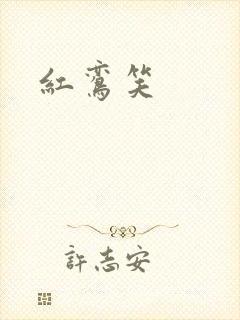 紅鸞笑
許志安